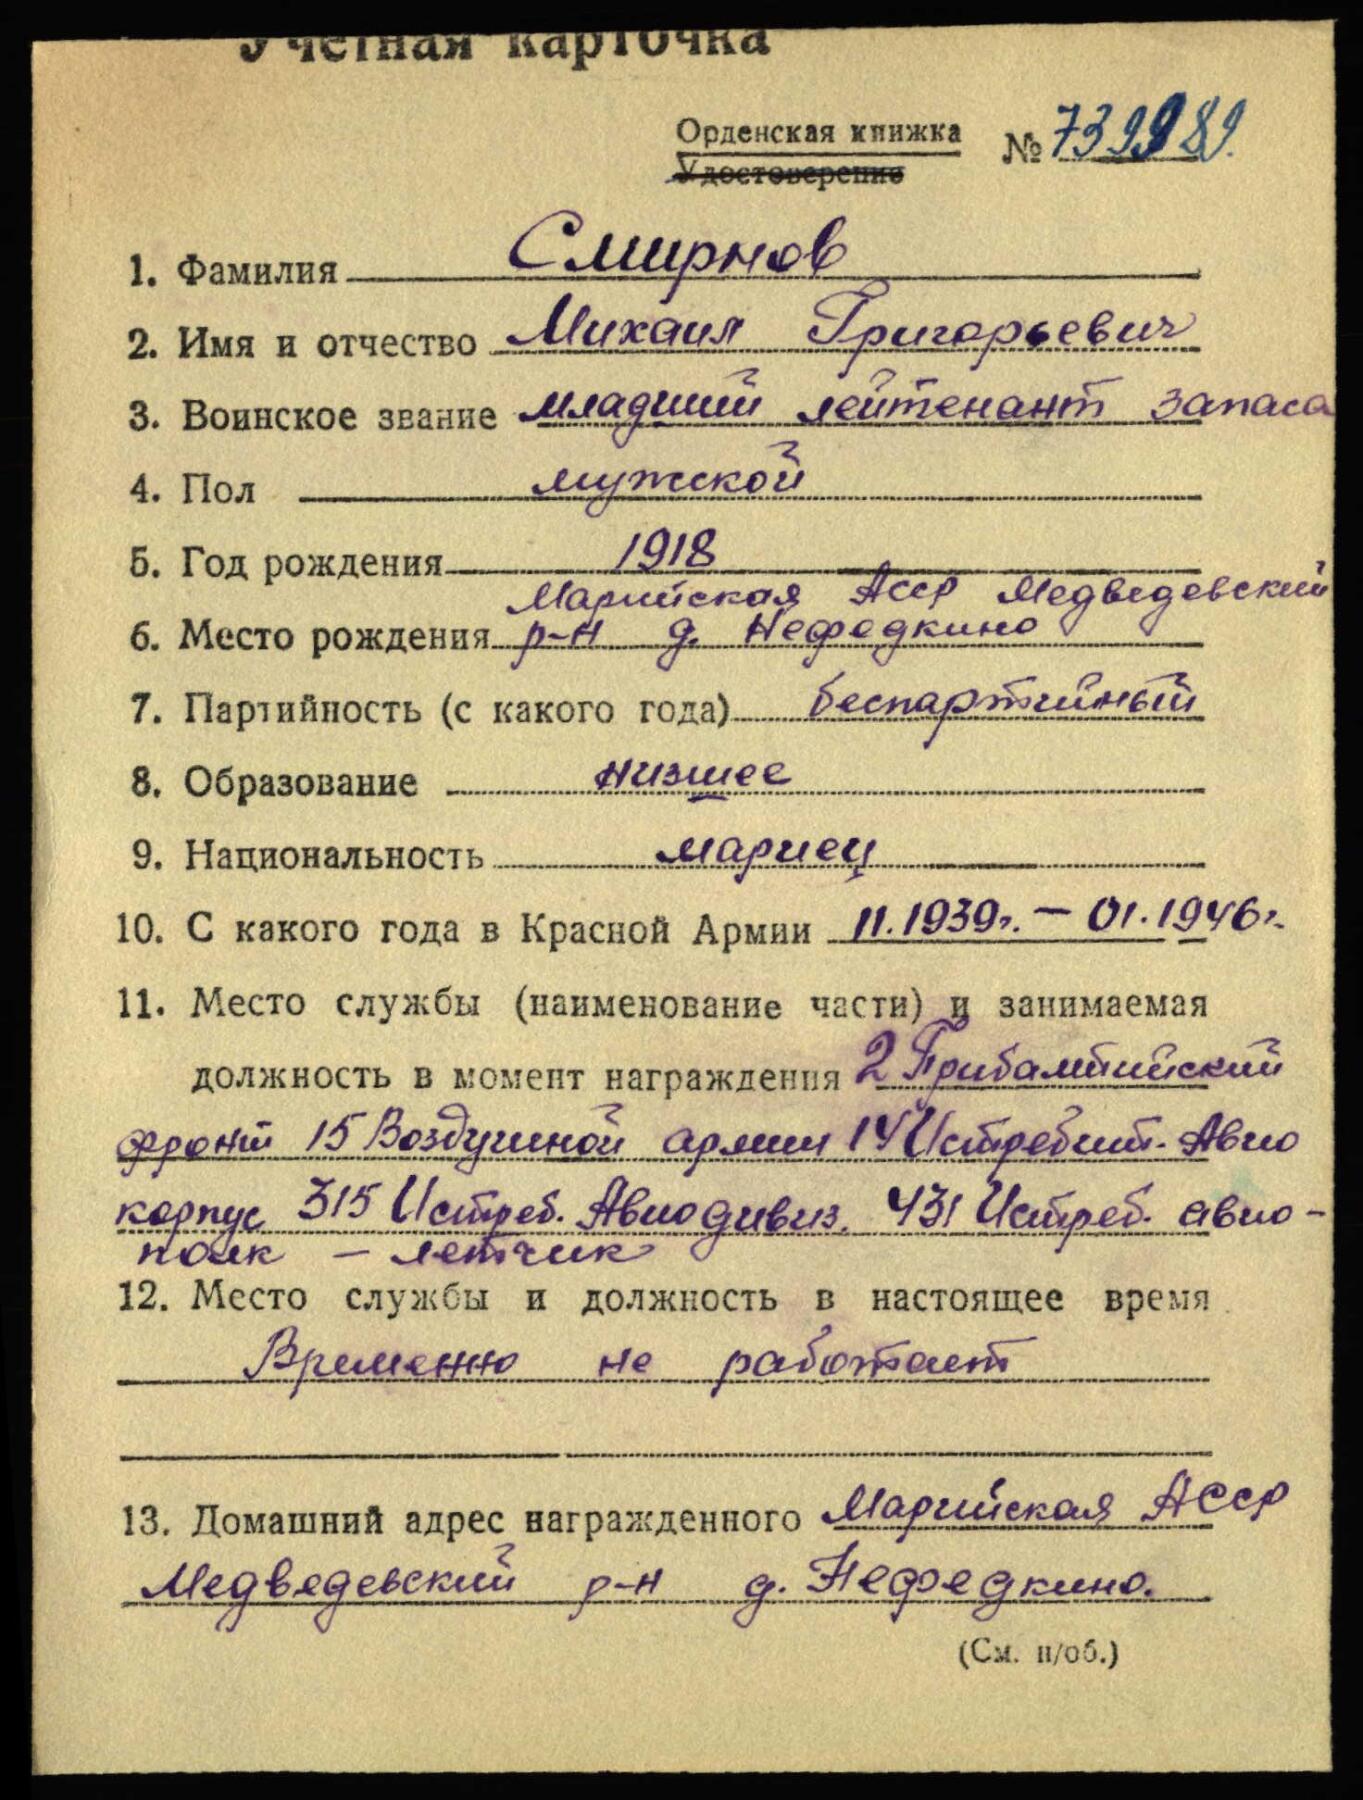 Учетная карточка
Орденская книжка № 739989.
Удостоверение
1. Фамилия Смирнов
2. Имя и отчество Михаил Григорьевич
3. Воинское звание младший лейтенант запаса
4. Пол мужской
5. Год рождения 1918
Марийская АССР Медведевский
6. Место рождения р-н д. Нефедкино
7. Партийность (с какого года) беспартийный
8. Образование низшее
9. Национальность мариец
10. С какого года в Красной Армии 11.1939г. — 01.1946г.
11. Место службы (наименование части) и занимаемая
должность в момент награждения 2 Прибалтийский
фронт 15 Воздушной армии 14 Истребит. Авио
корпус 315 Истреб. Авиодивиз. 431 Истреб. авио-
полк — летчик
12. Место службы и должность в настоящее время
Временно не работает
13. Домашний адрес награжденного Марийская АССР
Медведевский р-н д. Нефедкино.
(См. н/об.)